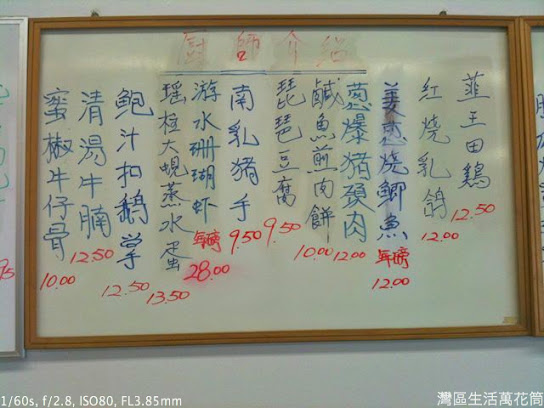 廚師介紹
韮王田鷄 12.50
紅燒乳鴿 12.00
姜葱燒鯽魚 每磅 12.00
葱爆猪頸肉 12.00
鹹魚煎肉餅 10.00
琵琶豆腐 9.50
南乳猪手 9.50
游水珊瑚虾 每磅 28.00
瑶柱大蜆蒸水蛋 13.50
鮑汁扣鵝掌 12.50
清湯牛腩 12.50
蜜椒牛仔骨 10.00
1/60s, f/2.8, ISO80, FL3.85mm
灣區生活萬花筒